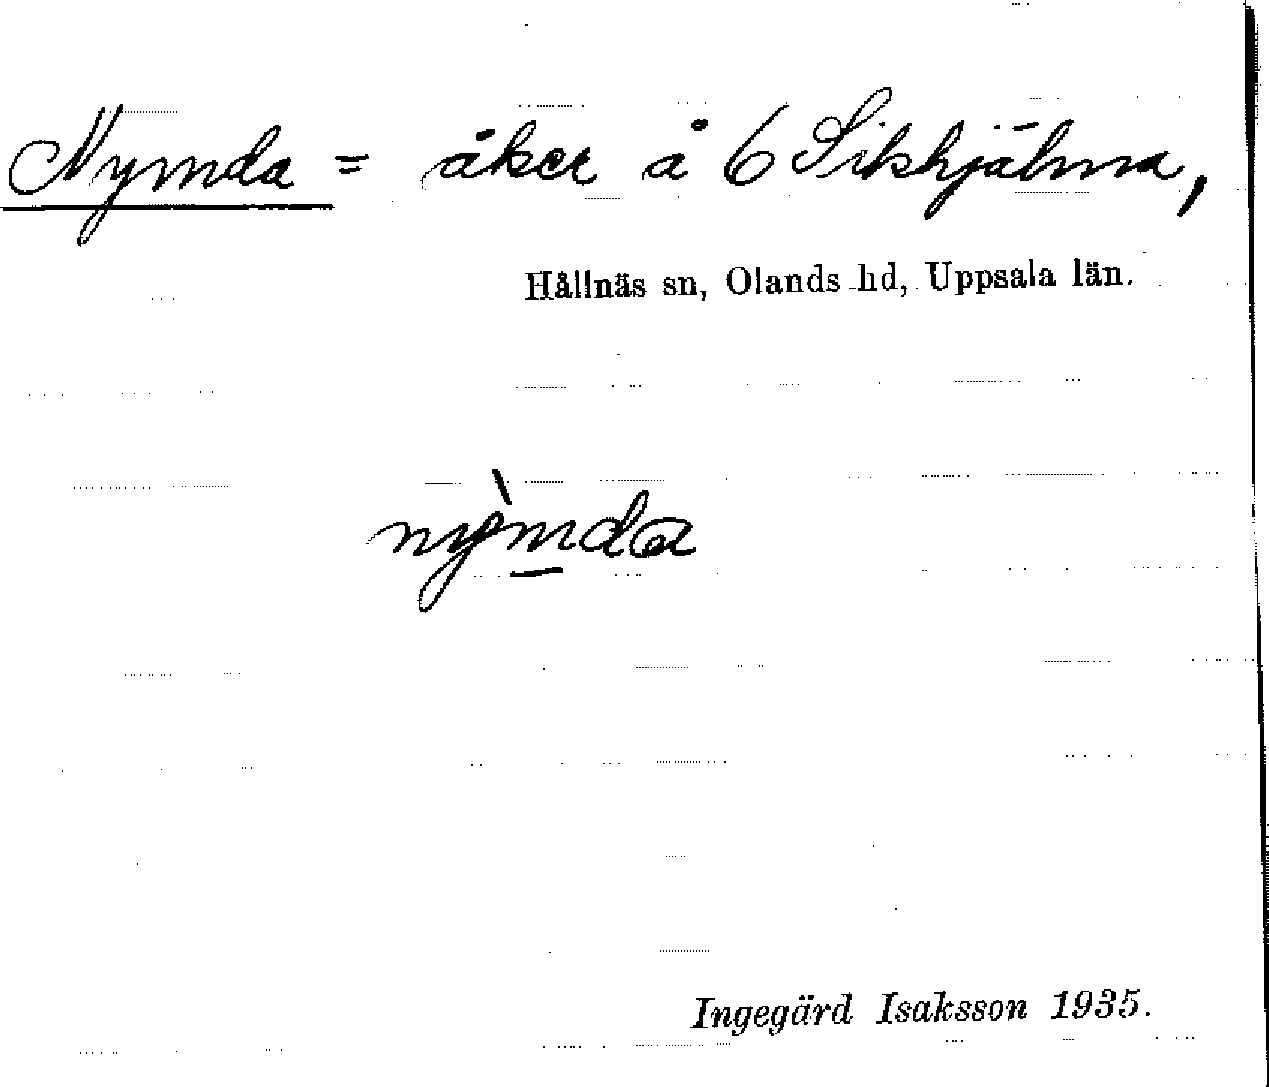 Nymda = åker å 6 Sikhjälma,
Hållnäs sn, Olands hd, Uppsala län.
nỳmda
Ingegärd Isaksson 1935.